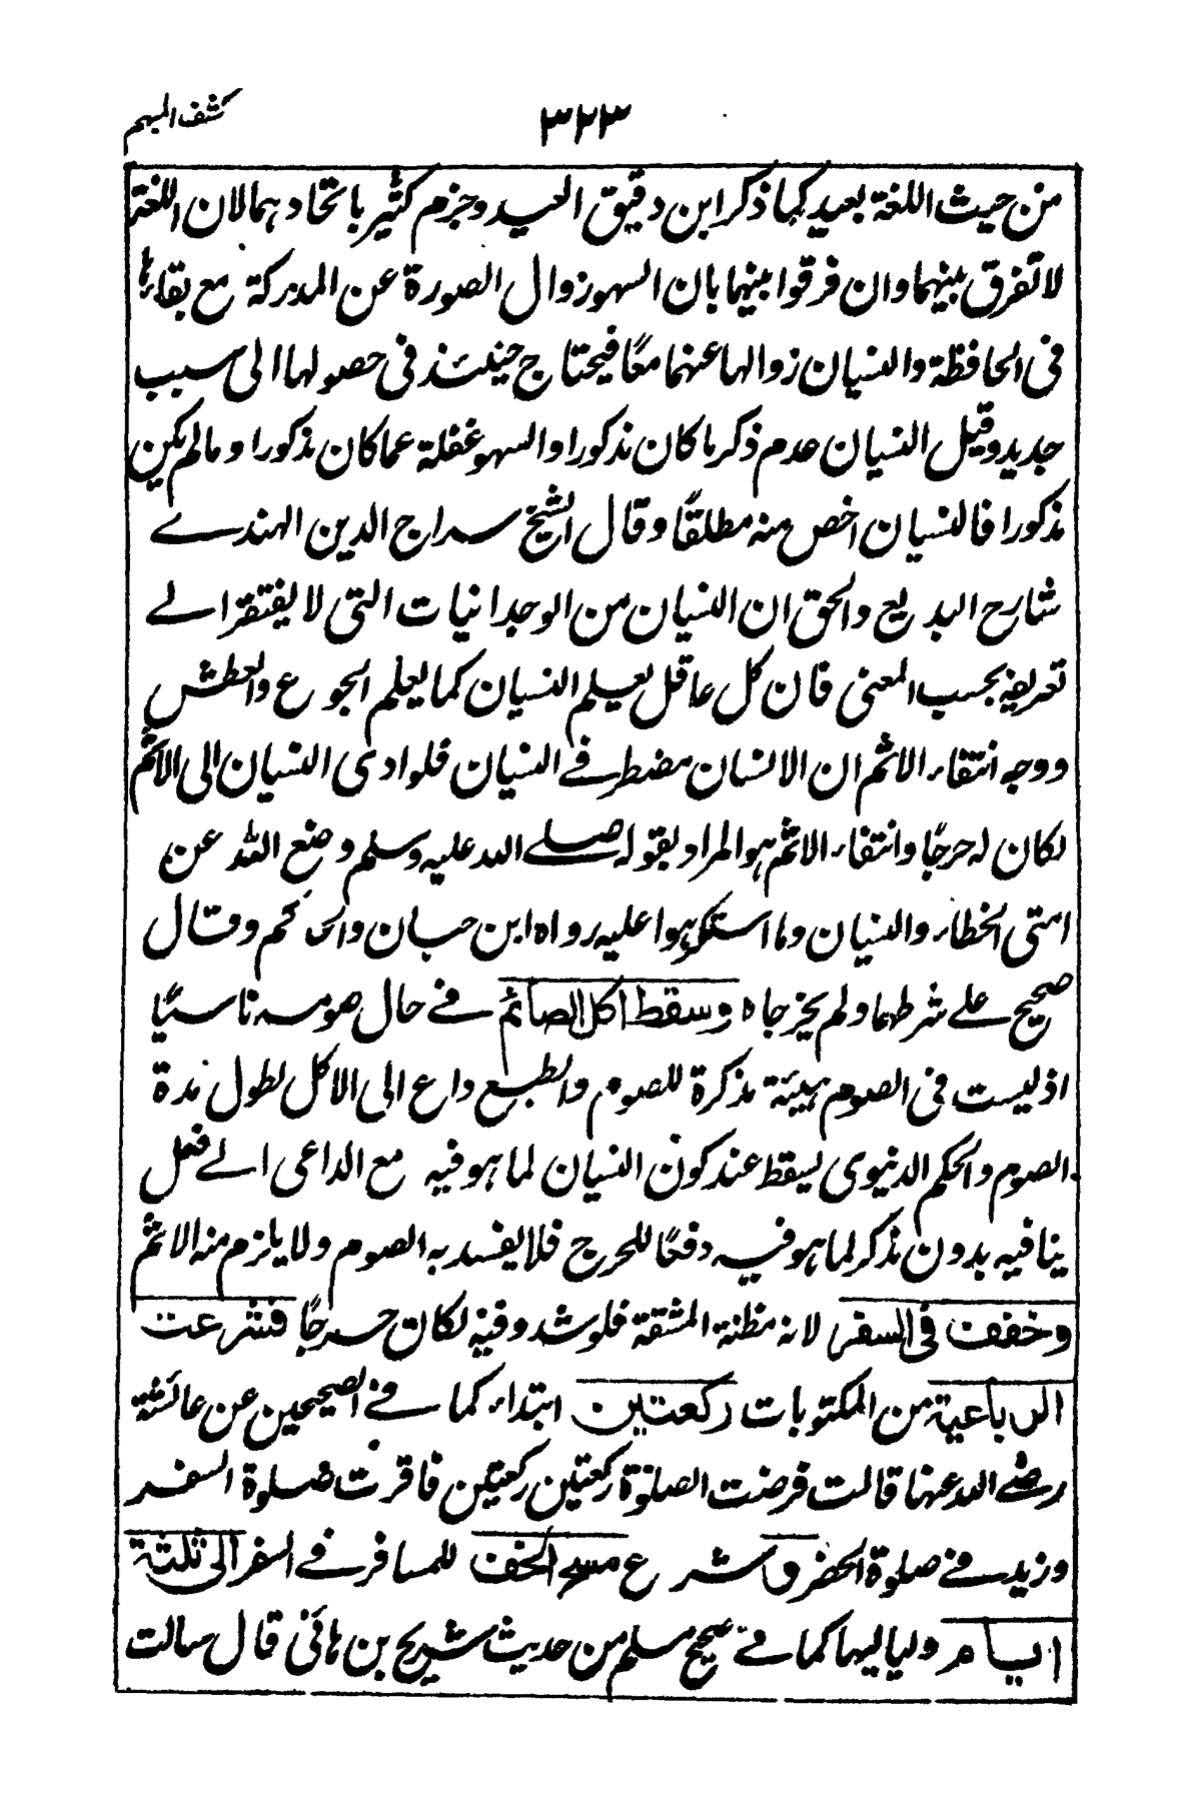 كشف المبهم
٣٢٣
من حيث اللغة بعيد كما ذكر ابن دقيق العيد وجزم كثير باتحادهما لان اللغة
لا تفرق بينهما وان فرقوا بينهما بان السهو زوال الصورة عن المدركة مع بقائها
فى الحافظة والنسيان زوالها عنهما معًا فيحتاج حينئذ فى حصولها الى سبب
جديد وقيل النسيان عدم ذكر ما كان مذكورا والسهو غفلة عما كان مذكورا وما لم يكن
مذكورا فالنسيان اخص منه مطلقًا وقال الشيخ سراج الدين الهندے
شارح البديع والحق ان النسيان من الوجدانيات التى لا يفتقر الے
تعريفه بحسب المعنى فان كل عاقل يعلم النسيان كما يعلم الجوع والعطش
ووجه انتفاء الاثم ان الانسان مضطر فے النسيان فلو ادى النسيان الى الاثم
لكان له حرجًا وانتفاء الاثم هو المراد بقوله صلے الله عليه وسلم وضع الله عن
امتى الخطاء والنسيان وما استكرهوا عليه رواه ابن حبان والحاكم وقال
صحيح علے شرطهما ولم يخرجاه وسقط اكل الصائم فے حال صومه ناسيًا
اذ ليست فى الصوم هيئة مذكرة للصوم والطبع داع الى الاكل لطول مدة
الصوم والحكم الدنيوى يسقط عند كون النسيان لما هو فيه مع الداعى الے فعل
ينافيه بدون مذكر لما هو فيه دفعًا للحرج فلا يفسد به الصوم ولا يلزم منه الاثم
وخفف فى السفر لانه مظنة المشقة فلو شدد فيه لكان حرجًا فشرعت
الرباعية من المكتوبات ركعتين ابتداء كما فے الصحيحين عن عائشة
رضے الله عنها قالت فرضت الصلوة ركعتين ركعتين فاقرت صلوة السفر
وزيد فے صلوة الحضر و شرع مسح الخف للمسافر فے السفر الى ثلثة
ايام ولياليها كما فے صحيح مسلم من حديث شريح بن هانى قال سالت